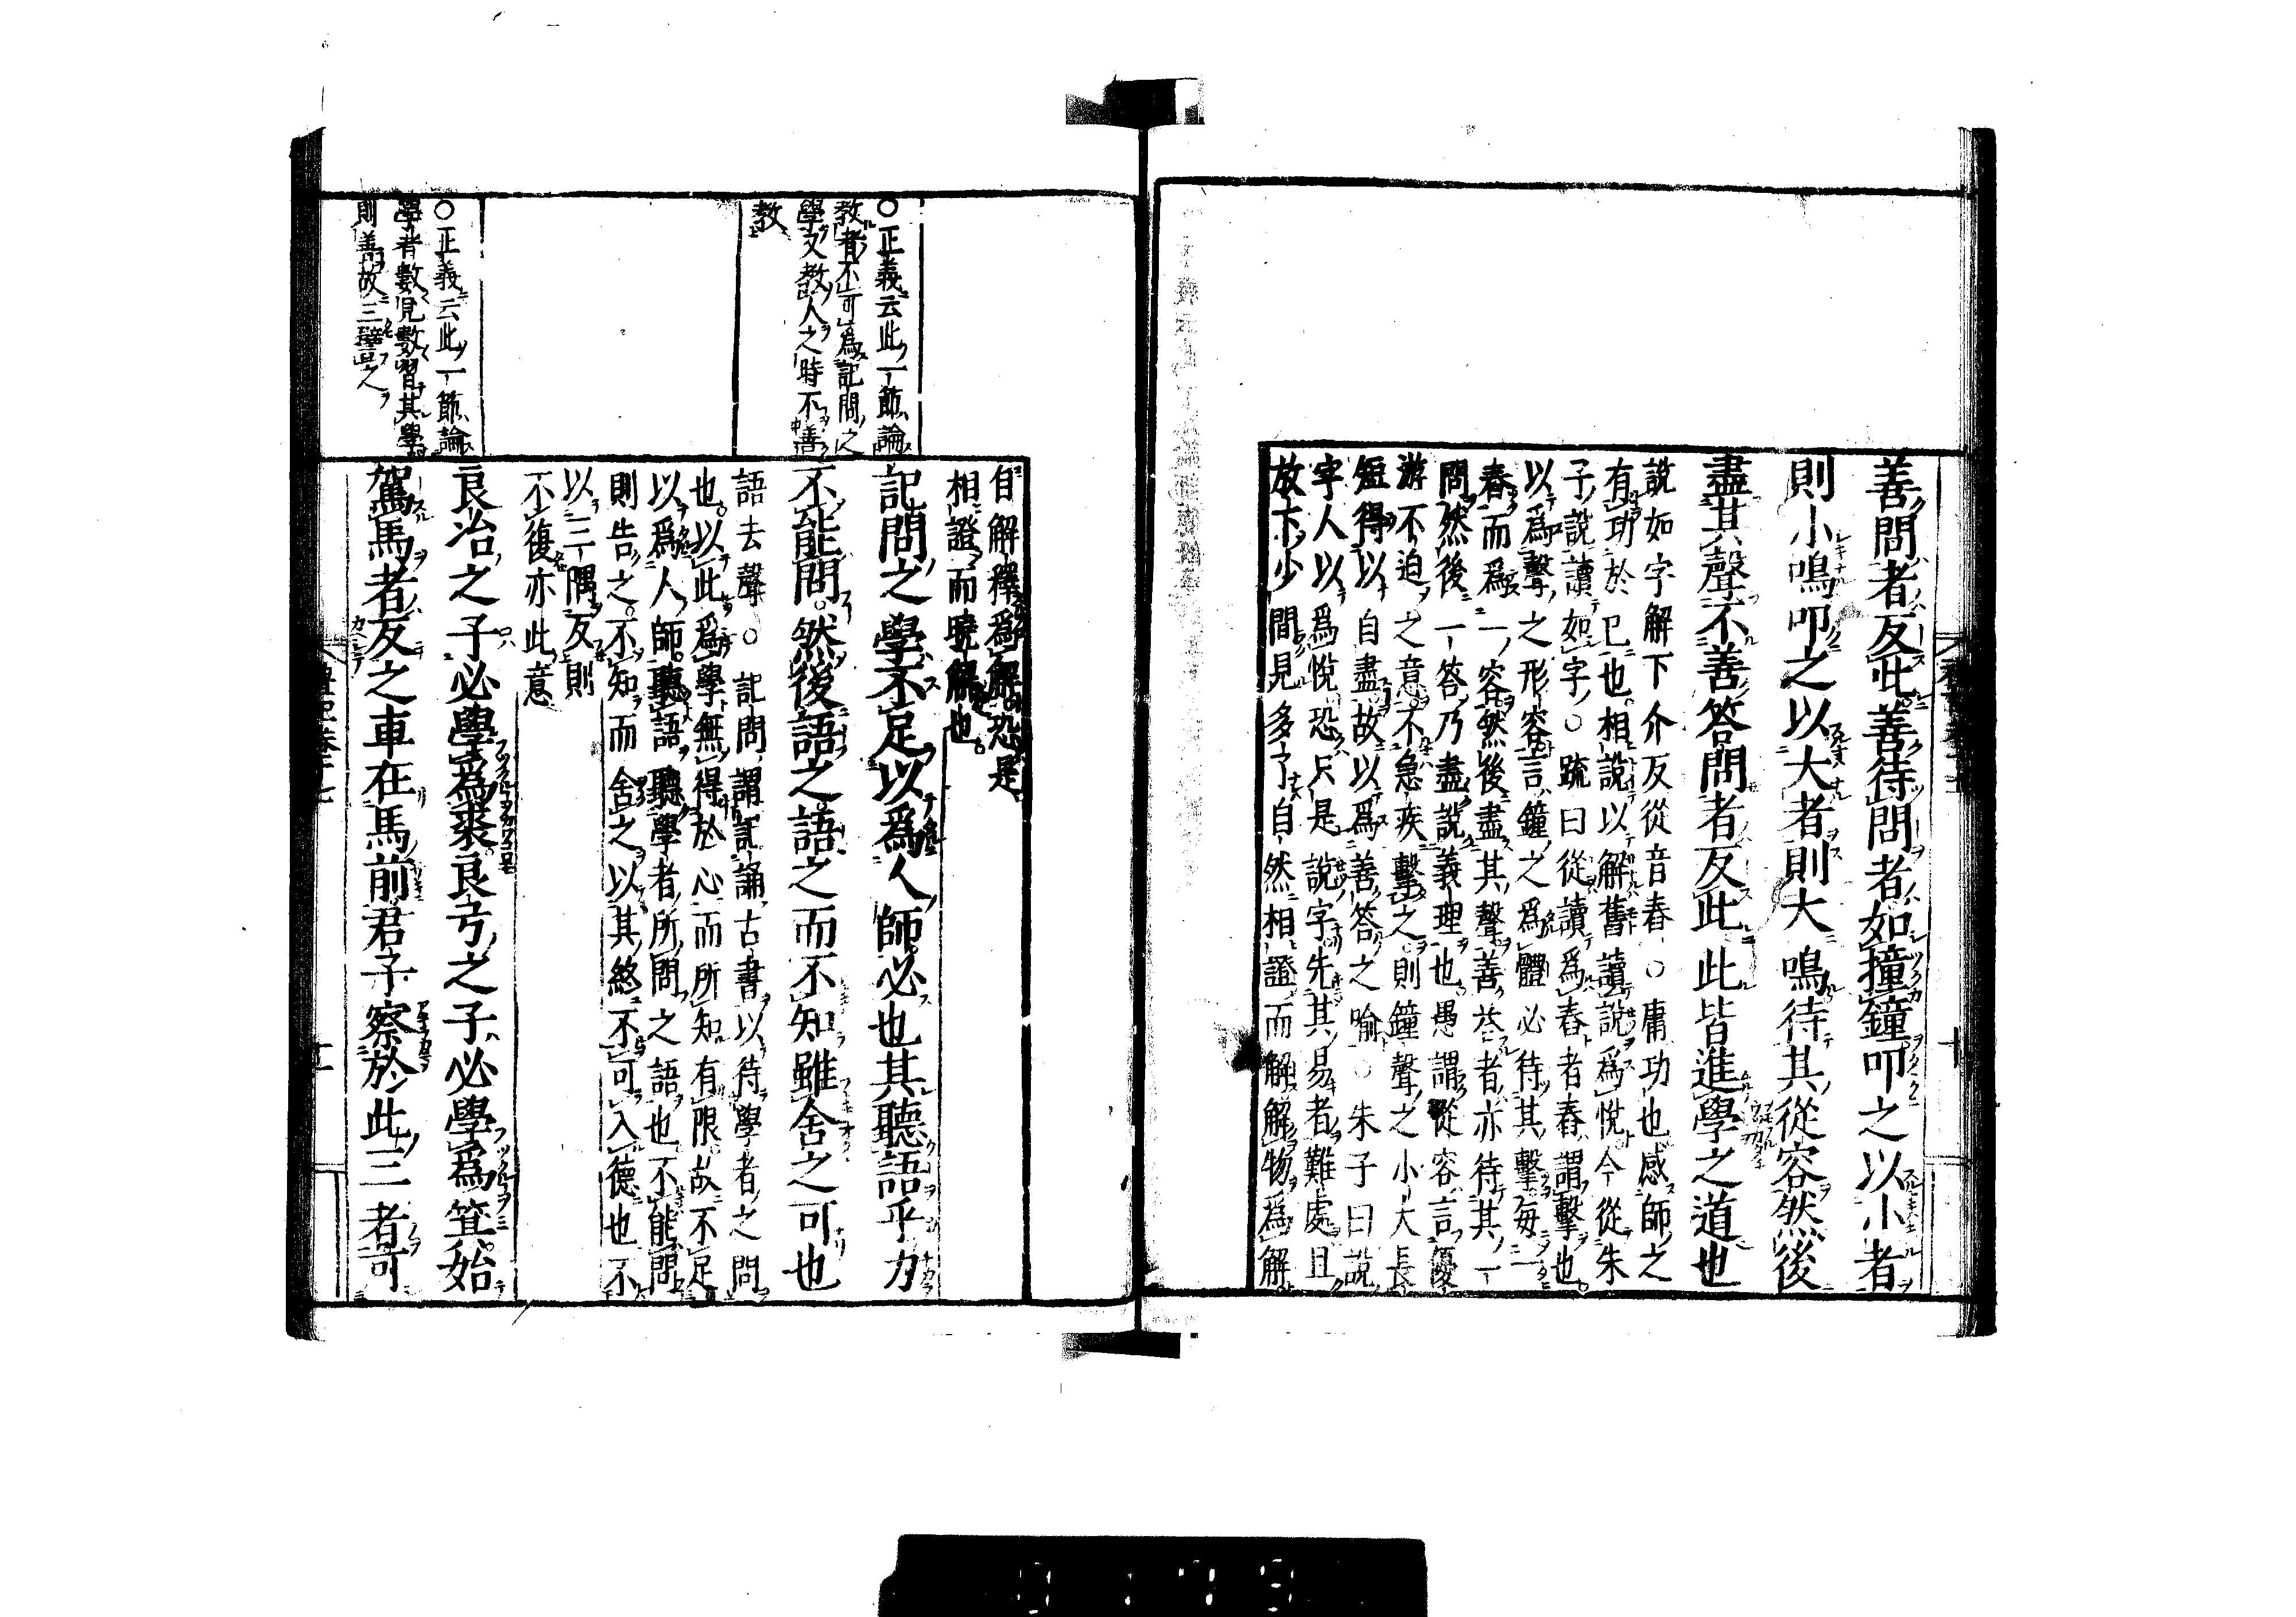 善問者反此善待問者如撞鐘叩之以小者
則小鳴叩之以大者則大鳴待其從容然後
盡其聲不善答問者反此此皆進學之道也
說如字解下介反從音舂○庸功也感師之
有功於己也相說以解舊讀說爲悅今從朱
子說讀如字○疏曰從讀爲舂者舂謂擊也
以爲聲之形容言鐘之爲體必待其擊每一
舂而爲一容然後盡其聲善答者亦待其一
問然後一答乃盡說義理也愚謂從容言優
游不迫之意不急疾擊之則鐘聲之小大長
短得以自盡故以爲善答之喻○朱子曰說
字人以爲悅恐只是說字先其易者難處且
放下少間見多了自然相證而解解物爲解
自解釋爲解恐是
相證而曉解也
○正義云此一節論
教者不可爲記問之
學又教人之時不善
教
記問之學不足以爲人師必也其聽語乎力
不能問然後語之語之而不知雖舍之可也
語去聲○記問謂記誦古書以待學者之問
也以此爲學無得於心而所知有限故不足
以爲人師聽語聽學者所問之語也不能問
則告之不知而舍之以其終不可入德也不
以三隅反則
不復亦此意
○正義云此一節論
學者數見數習其學
則善故三譬之
良冶之子必學爲裘良弓之子必學爲箕始
駕馬者反之車在馬前君子察於此三者可